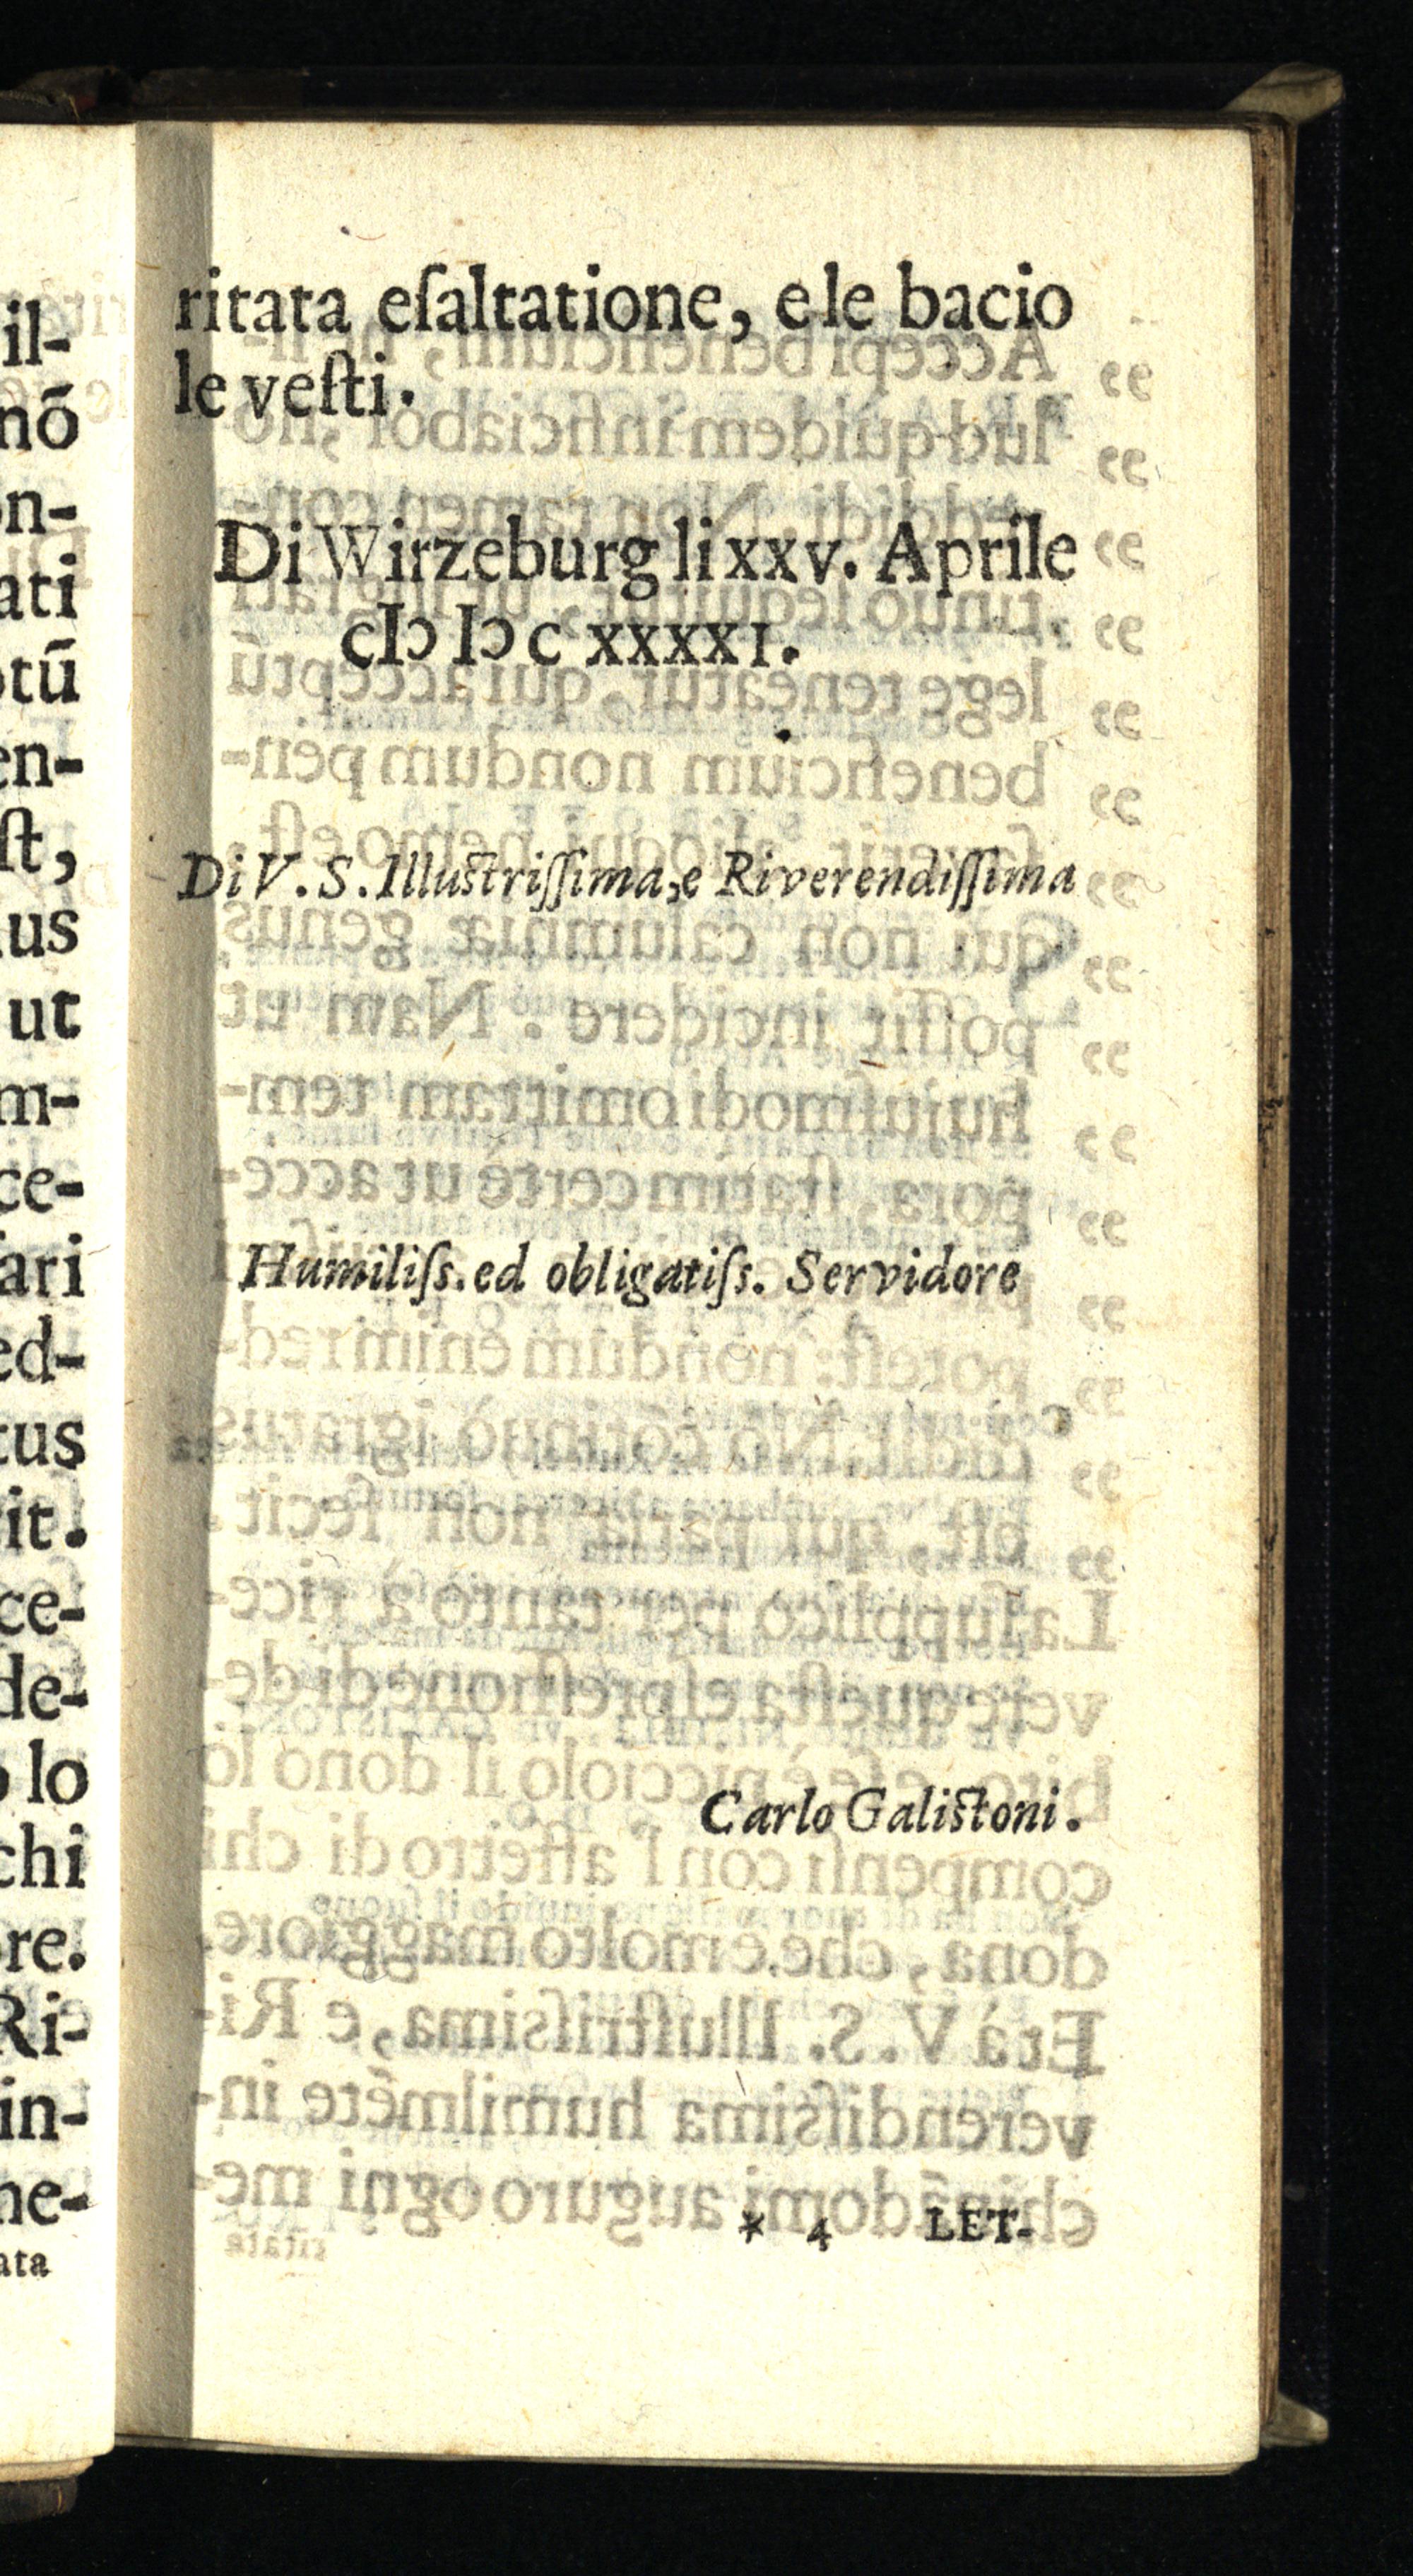 ritata eſaltatione, e le bacio
le veſti.
Di Wirzeburg li xxv. Aprile
cIↄ Iↄ c xxxxI.
Di V. S. Illuſtriſſima, e Riverendiſſima
Humiliſs. ed obligatiſs. Servidore
Carlo Galiſtoni.
* 4 LET-
il-
nō
on-
ati
ptū
en-
ſt,
us
ut
m-
ce-
ari
ed-
tus
it.
ce-
de-
lo
chi
re.
Ri-
in-
me-
ata